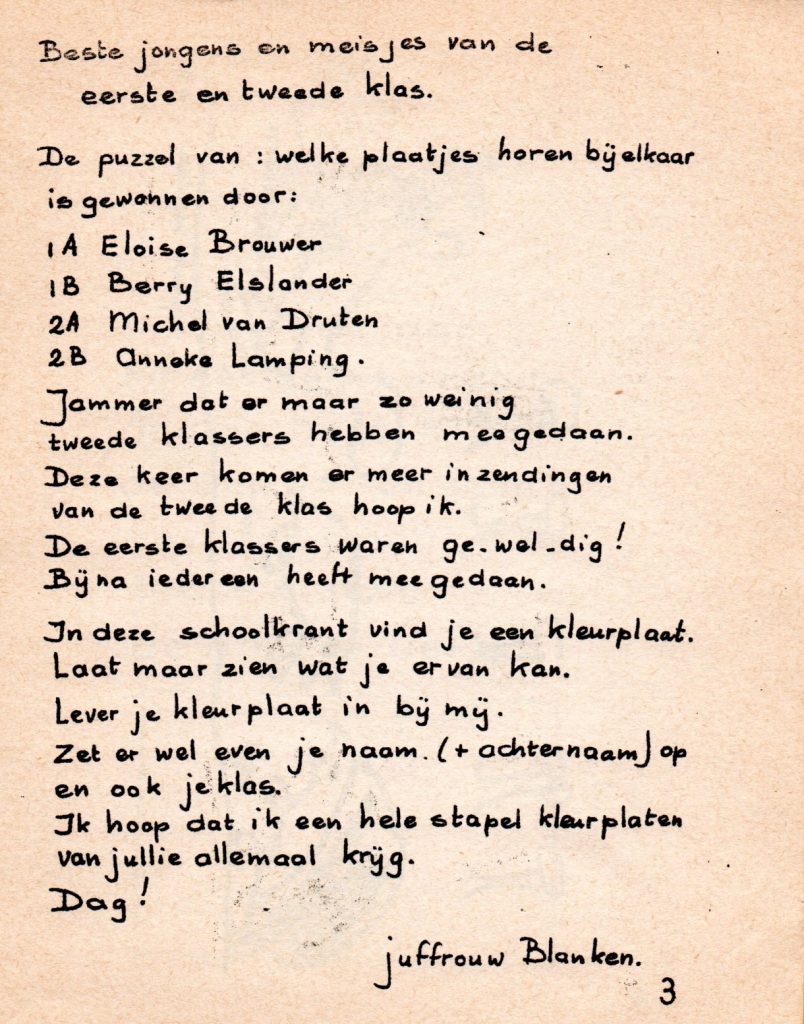 Beste jongens en meisjes van de
eerste en tweede klas.
De puzzel van : welke plaatjes horen bij elkaar
is gewonnen door:
1A Eloise Brouwer
1B Berry Elslander
2A Michel van Druten
2B Anneke Lamping.
Jammer dat er maar zo weinig
tweede klassers hebben meegedaan.
Deze keer komen er meer inzendingen
van de tweede klas hoop ik.
De eerste klassers waren ge-wel-dig!
Bijna iedereen heeft meegedaan.
In deze schoolkrant vind je een kleurplaat.
Laat maar zien wat je ervan kan.
Lever je kleurplaat in bij mij.
Zet er wel even je naam. (+ achternaam) op
en ook je klas.
Ik hoop dat ik een hele stapel kleurplaten
van jullie allemaal krijg.
Dag!
juffrouw Blanken.
3